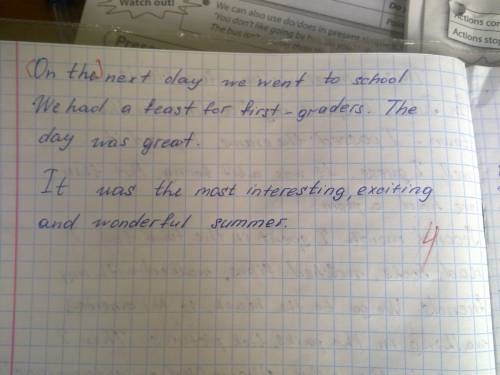 Watch out!
We can also use do/does in present
"You don't like going by
The bus isn't
Actions
Actions
(On the) next day we went to school
We had a feast for first-graders. The
day was great.
It was the most interesting, exciting
and wonderful summer.
4